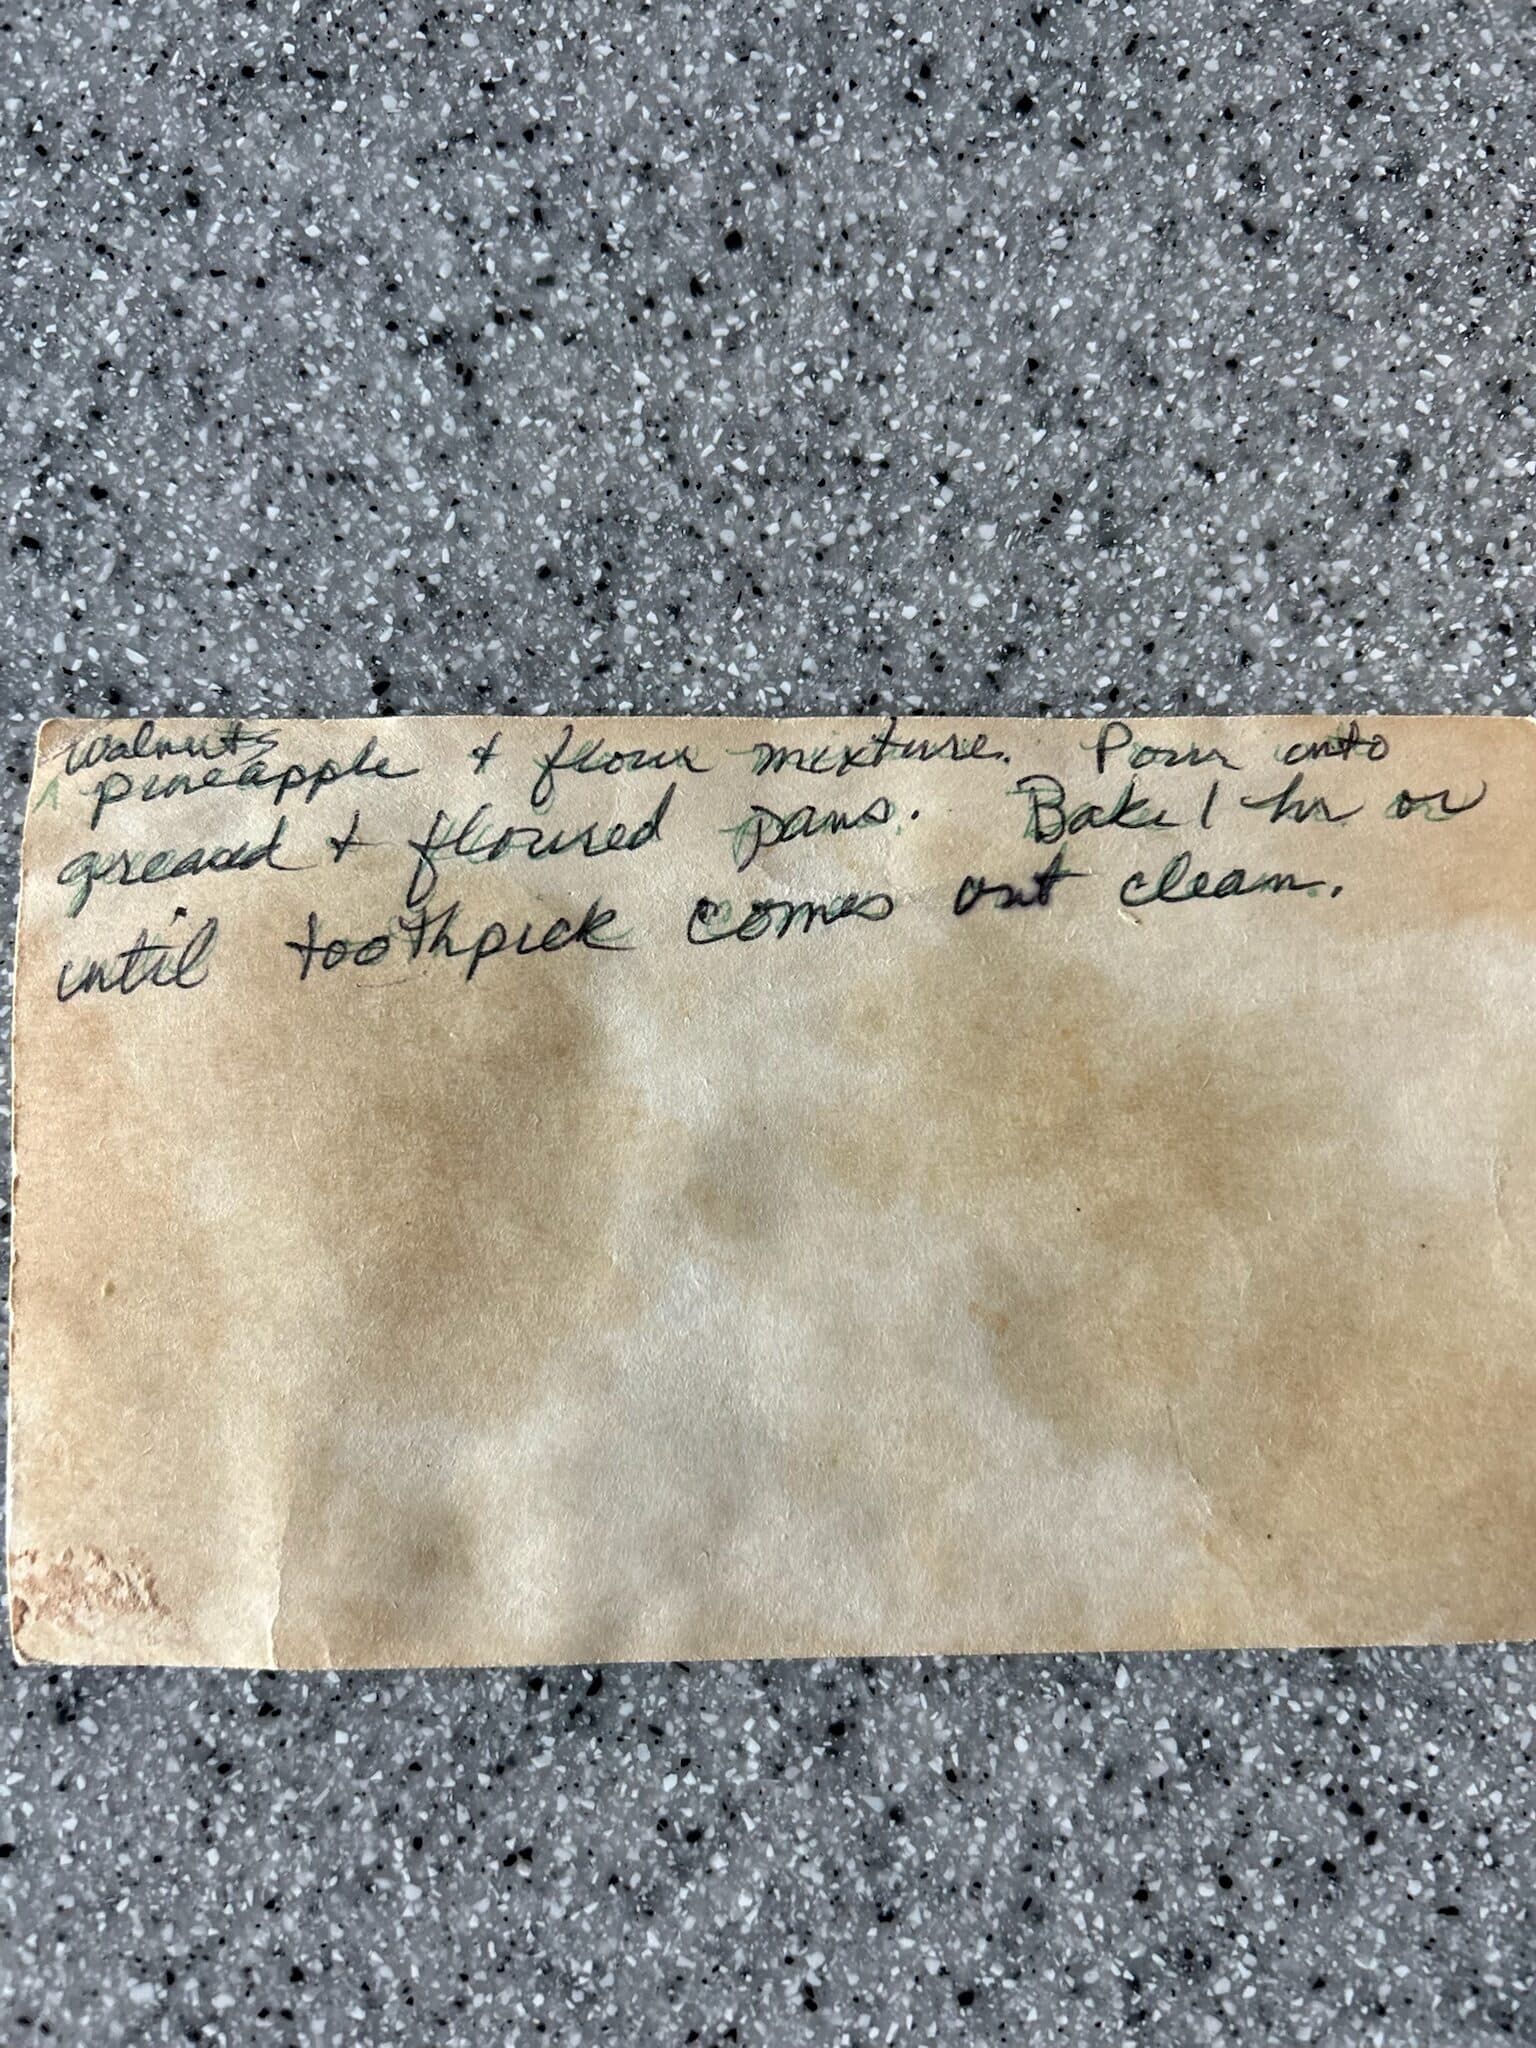 walnuts
^ pineapple + flour mixture. Pour into
greased + floured pans. Bake 1 hr or
until toothpick comes out clean.